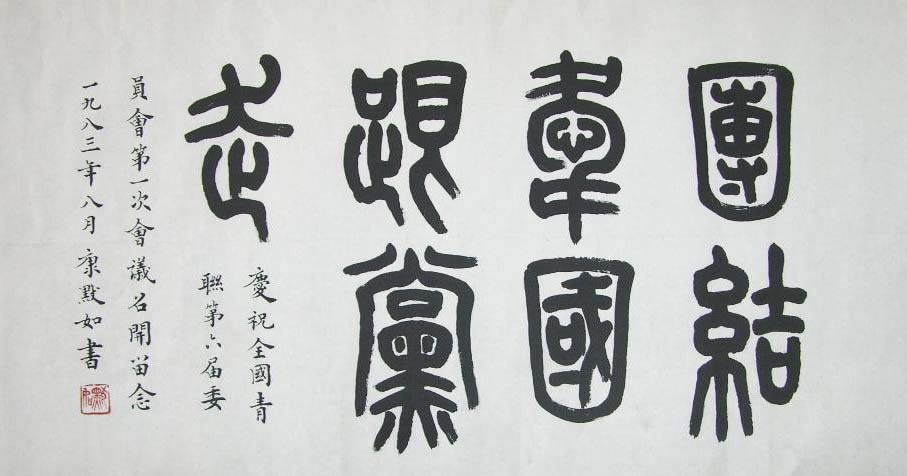 團結
國
跟黨
走
慶祝全國青
聯第六届委
員會第一次會議召開留念
一九八三年八月康默如書